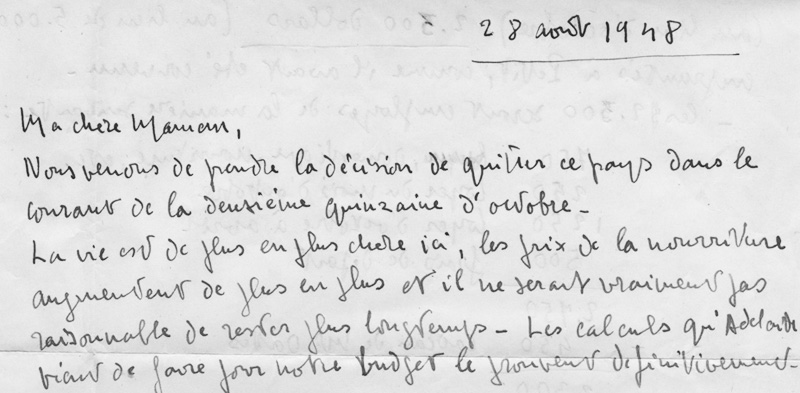 28 août 1948
Ma chère Maman,
Nous venons de prendre la décision de quitter ce pays dans le
courant de la deuxième quinzaine d'octobre -
La vie est de plus en plus chère ici, les prix de la nourriture
augmentent de plus en plus et il ne serait vraiment pas
raisonnable de rester plus longtemps - Les calculs qu'Adelaide
vient de faire pour notre budget le prouvent définitivement -